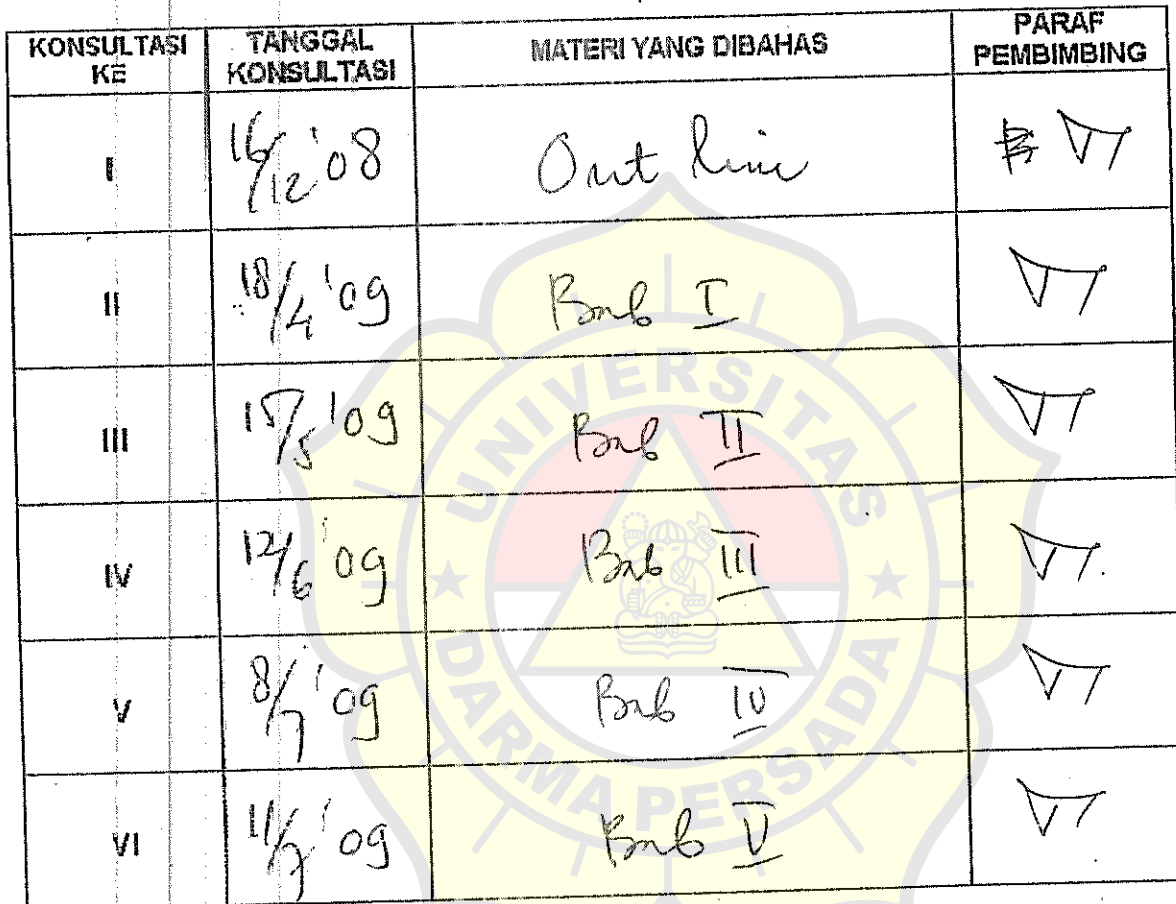 KONSULTASI KE TANGGAL KONSULTASI MATERI YANG DIBAHAS PARAF PEMBIMBING
I 16/12 '08 Out line
II 18/4 '09 Bab I
III 15/5 '09 Bab II
IV 12/6 '09 Bab III
V 8/7 '09 Bab IV
VI 11/7 '09 Bab V
UNIVERSITAS
DARMA PERSADA